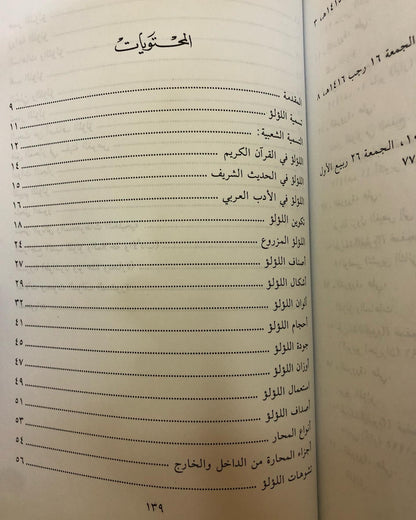 المحتويات
المقدمة ٩
تسمية اللؤلؤ ١١
التسمية الشعبية: ١٢
اللؤلؤ في القرآن الكريم ١٤
اللؤلؤ في الحديث الشريف ١٥
اللؤلؤ في الأدب العربي ١٦
تكوين اللؤلؤ ١٨
اللؤلؤ المزروع ٢٤
أصناف اللؤلؤ ٢٧
أشكال اللؤلؤ ٢٩
ألوان اللؤلؤ ٣٢
أحجام اللؤلؤ ٤١
جودة اللؤلؤ ٤٥
أوزان اللؤلؤ ٤٧
استعمال اللؤلؤ ٤٩
أصداف اللؤلؤ ٥١
أنواع المحار ٥٣
أجزاء المحارة من الداخل والخارج ٥٤
تشوهات اللؤلؤ ٥٦
١٣٩
الجمعة ١٦ رجب ١٤١٦هـ، ٨
الجمعة ٢٦ ربيع الأول
٧٧